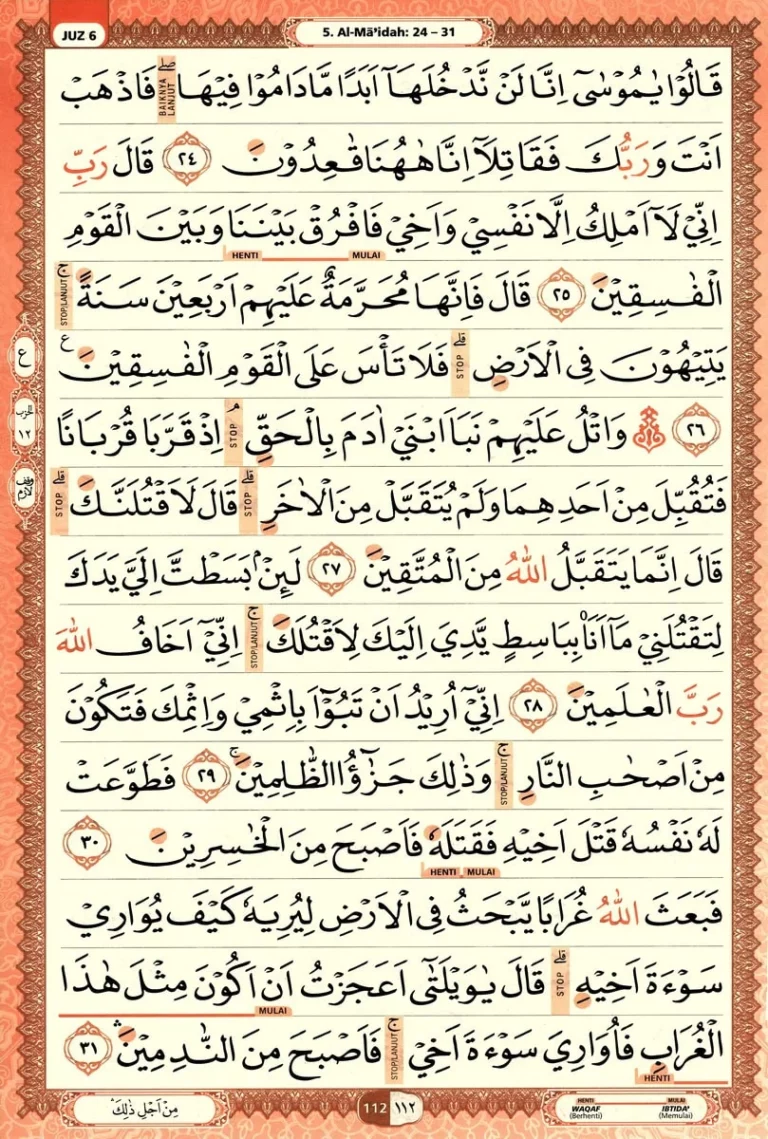 JUZ 6
5. Al-Mā'idah: 24 – 31
قَالُوْا يٰمُوْسٰٓى اِنَّا لَنْ نَّدْخُلَهَآ اَبَدًا مَّا دَامُوْا فِيْهَا ۖ BAIKNYA LANJUT فَاذْهَبْ
اَنْتَ وَرَبُّكَ فَقَاتِلَآ اِنَّا هٰهُنَا قٰعِدُوْنَ ٢٤ قَالَ رَبِّ
اِنِّيْ لَآ اَمْلِكُ اِلَّا نَفْسِيْ وَاَخِيْ فَافْرُقْ بَيْنَنَا وَبَيْنَ الْقَوْمِ
HENTI MULAI
الْفٰسِقِيْنَ ٢٥ قَالَ فَاِنَّهَا مُحَرَّمَةٌ عَلَيْهِمْ اَرْبَعِيْنَ سَنَةً ۚ STOP/LANJUT
يَتِيْهُوْنَ فِى الْاَرْضِ ۗ STOP فَلَا تَأْسَ عَلَى الْقَوْمِ الْفٰسِقِيْنَ ࣖ
٢٦ ۞ وَاتْلُ عَلَيْهِمْ نَبَاَ ابْنَيْ اٰدَمَ بِالْحَقِّ ۘ STOP اِذْ قَرَّبَا قُرْبَانًا
فَتُقُبِّلَ مِنْ اَحَدِهِمَا وَلَمْ يُتَقَبَّلْ مِنَ الْاٰخَرِ ۗ STOP قَالَ لَاَقْتُلَنَّكَ ۗ STOP
قَالَ اِنَّمَا يَتَقَبَّلُ اللّٰهُ مِنَ الْمُتَّقِيْنَ ٢٧ لَىِٕنْۢ بَسَطْتَّ اِلَيَّ يَدَكَ
لِتَقْتُلَنِيْ مَآ اَنَا۠ بِبَاسِطٍ يَّدِيَ اِلَيْكَ لِاَقْتُلَكَ ۚ STOP/LANJUT اِنِّيْٓ اَخَافُ اللّٰهَ
رَبَّ الْعٰلَمِيْنَ ٢٨ اِنِّيْٓ اُرِيْدُ اَنْ تَبُوْۤاَ بِاِثْمِيْ وَاِثْمِكَ فَتَكُوْنَ
مِنْ اَصْحٰبِ النَّارِ ۚ STOP/LANJUT وَذٰلِكَ جَزٰۤؤُا الظّٰلِمِيْنَ ۚ ٢٩ فَطَوَّعَتْ
لَهٗ نَفْسُهٗ قَتْلَ اَخِيْهِ فَقَتَلَهٗ فَاَصْبَحَ مِنَ الْخٰسِرِيْنَ ٣٠
HENTI MULAI
فَبَعَثَ اللّٰهُ غُرَابًا يَّبْحَثُ فِى الْاَرْضِ لِيُرِيَهٗ كَيْفَ يُوَارِيْ
سَوْءَةَ اَخِيْهِ ۗ STOP قَالَ يٰوَيْلَتٰٓى اَعَجَزْتُ اَنْ اَكُوْنَ مِثْلَ هٰذَا
MULAI
الْغُرَابِ فَاُوَارِيَ سَوْءَةَ اَخِيْ ۚ STOP/LANJUT فَاَصْبَحَ مِنَ النّٰدِمِيْنَ ۛ ٣١
HENTI
ع
الحزب
١٢
وقف لازم
مِنْ اَجْلِ ذٰلِكَ ۛ
112 ١١٢
HENTI MULAI
WAQAF IBTIDA'
(Berhenti) (Memulai)